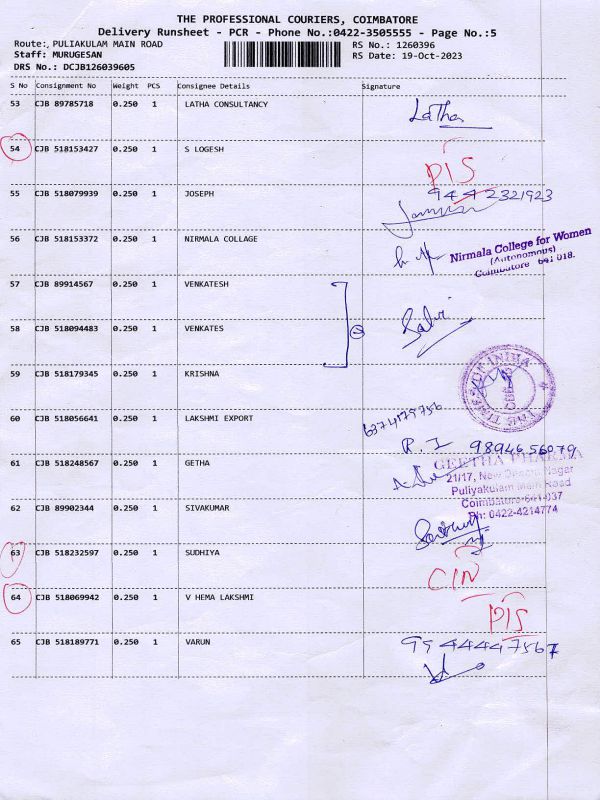 THE PROFESSIONAL COURIERS, COIMBATORE
Delivery Runsheet - PCR - Phone No.:0422-3505555 - Page No.:5
Route:, PULIAKULAM MAIN ROAD RS No.: 1260396
Staff: MURUGESAN RS Date: 19-Oct-2023
DRS No.: DCJB126039605
S No Consignment No Weight PCS Consignee Details Signature
53 CJB 89785718 0.250 1 LATHA CONSULTANCY Latha
54 CJB 518153427 0.250 1 S LOGESH PIS
55 CJB 518079939 0.250 1 JOSEPH 9442321923
56 CJB 518153372 0.250 1 NIRMALA COLLAGE Nirmala College for Women
(Autonomous)
Coimbatore 641 018.
57 CJB 89914567 0.250 1 VENKATESH
58 CJB 518094483 0.250 1 VENKATES 2 Salvi
59 CJB 518179345 0.250 1 KRISHNA
60 CJB 518056641 0.250 1 LAKSHMI EXPORT 6374175756
P. I 9894656079
61 CJB 518248567 0.250 1 GETHA GEETHA PHARMA
21/17, New Nagar
Puliyakulam Main Road
Coimbatore-641037
Ph: 0422-4214774
62 CJB 89902344 0.250 1 SIVAKUMAR
63 CJB 518232597 0.250 1 SUDHIYA CIN
64 CJB 518069942 0.250 1 V HEMA LAKSHMI PIS
65 CJB 518189771 0.250 1 VARUN 9944447567